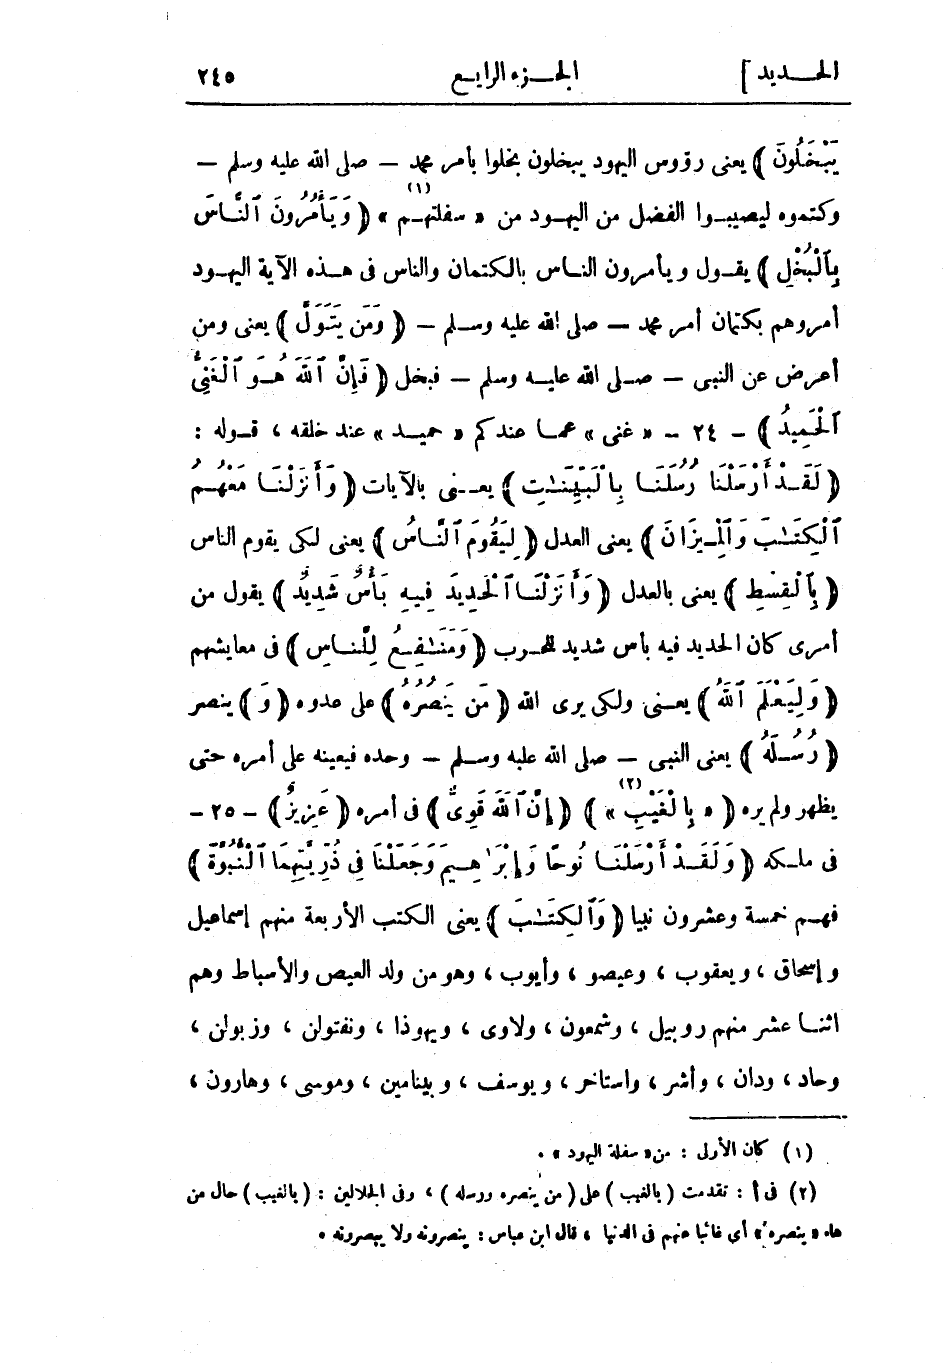 الحـديد ] الجـزء الرابع ٢٤٥
يَبْخَلُونَ ﴾ يعنى رؤوس اليهود يبخلون بخلوا بأمر محمد — صلى الله عليه وسلم —
وكتموه ليصيبـوا الفضل من اليهـود من « سفلتهـم » (١) ﴿ وَيَأْمُرُونَ ٱلنَّاسَ
بِٱلْبُخْلِ ﴾ يقـول ويأمرون النـاس بالكتمان والناس فى هـذه الآية اليهـود
أمروهم بكتمان أمر محمد — صلى الله عليه وسـلم — ﴿ وَمَن يَتَوَلَّ ﴾ يعنى ومن
أعرض عن النبى — صـلى الله عليـه وسلم — فبخل ﴿ فَإِنَّ ٱللَّهَ هُـوَ ٱلْغَنِىُّ
ٱلْحَمِيدُ ﴾ - ٢٤ - « غنى » عمـا عندكم « حميـد » عند خلقه ، قـوله :
﴿ لَقَـدْ أَرْسَلْنَا رُسُلَنَـا بِٱلْبَيِّنَـٰتِ ﴾ يعـنى بالآيات ﴿ وَأَنزَلْنَـا مَعَهُـمُ
ٱلْكِتَـٰبَ وَٱلْمِـيزَانَ ﴾ يعنى العدل ﴿ لِيَقُومَ ٱلنَّـاسُ ﴾ يعنى لكى يقوم الناس
﴿ بِٱلْقِسْطِ ﴾ يعنى بالعدل ﴿ وَأَنزَلْنَـا ٱلْحَدِيدَ فِيـهِ بَأْسٌ شَدِيدٌ ﴾ يقول من
أمرى كان الحديد فيه بأس شديد للحـرب ﴿ وَمَنَـٰفِـعُ لِلنَّاسِ ﴾ فى معايشهم
﴿ وَلِيَعْلَمَ ٱللَّهُ ﴾ يعـنى ولكى يرى الله ﴿ مَن يَنصُرُهُ ﴾ على عدوه ﴿ وَ ﴾ ينصر
﴿ رُسُـلَهُ ﴾ يعنى النبى — صلى الله عليه وسـلم — وحده فيعينه على أمره حتى
يظهر ولم يره ﴿ « بِالْغَيْبِ » (٢) ﴾ ﴿ إِنَّ ٱللَّهَ قَوِىٌّ ﴾ فى أمره ﴿ عَزِيزٌ ﴾ - ٢٥ -
فى ملـكه ﴿ وَلَقَـدْ أَرْسَلْنَـا نُوحًا وَإِبْرَٰهِـيمَ وَجَعَلْنَا فِى ذُرِّيَّتِهِمَا ٱلنُّبُوَّةَ ﴾
فهـم خمسة وعشرون نبيا ﴿ وَٱلْكِتَـٰبَ ﴾ يعنى الكتب الأربعة منهم إسماعيل
وإسحاق ، ويعقوب ، وعيصو ، وأيوب ، وهو من ولد العيص والأسباط وهم
اثنـا عشر منهم روبيل ، وشمعون ، ولاوى ، ويهوذا ، ونفتولن ، وزبولن ،
وحاد ، ودان ، وأشر ، واستاخر ، ويوسف ، وبينامين ، وموسى ، وهارون ،
(١) كان الأولى : من « سفلة اليهود » .
(٢) فى أ : تقدمت ( بالغيب ) على ( من ينصره ورسله ) ، وفى الجلالين : ( بالغيب ) حال من
هاء « ينصره » أى غائبا عنهم فى الدنيا ، قال ابن عباس : ينصرونه ولا يبصرونه .